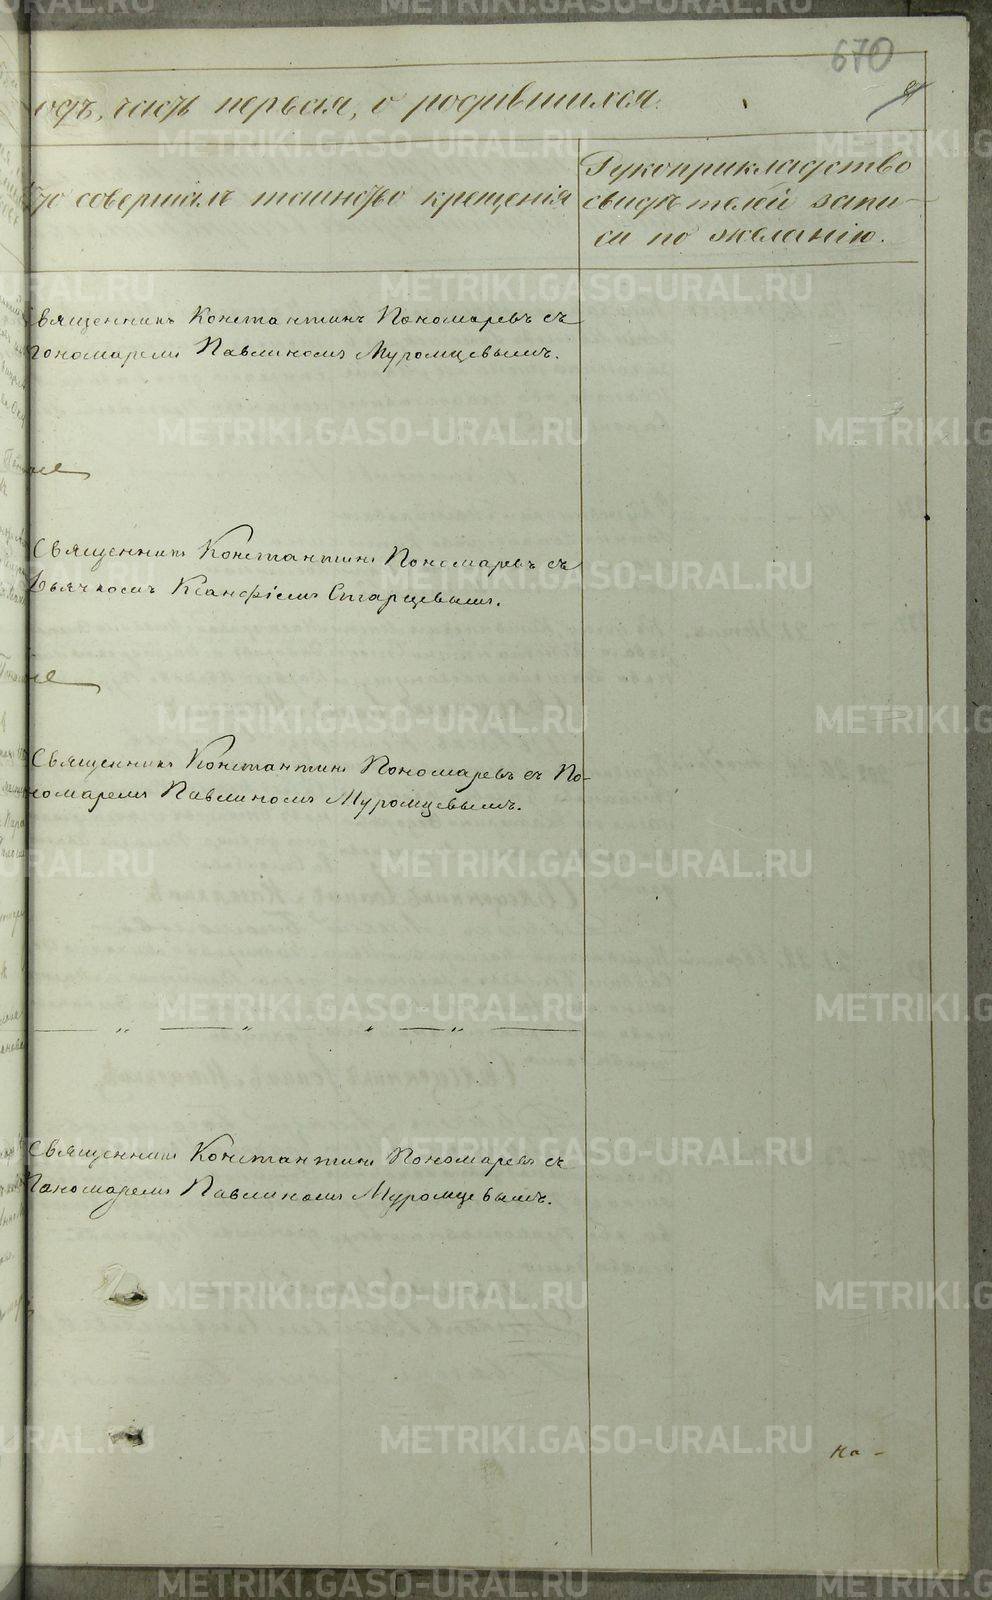 670
одъ, часть первая, о родившихся.
то совершалъ таинство крещенія
Рукоприкладство
свидѣтелей запи-
си по желанію.
Священникъ Константинъ Пономаревъ съ
пономаремъ Павлиномъ Муромцевымъ.
Священникъ Константинъ Пономаревъ съ
Дьячкомъ Ксанфіемъ Старцевымъ.
Священникъ Константинъ Пономаревъ съ По-
номаремъ Павлиномъ Муромцевымъ.
Священникъ Константинъ Пономаревъ съ
Пономаремъ Павлиномъ Муромцевымъ.
На -
METRIKI.GASO-URAL.RU